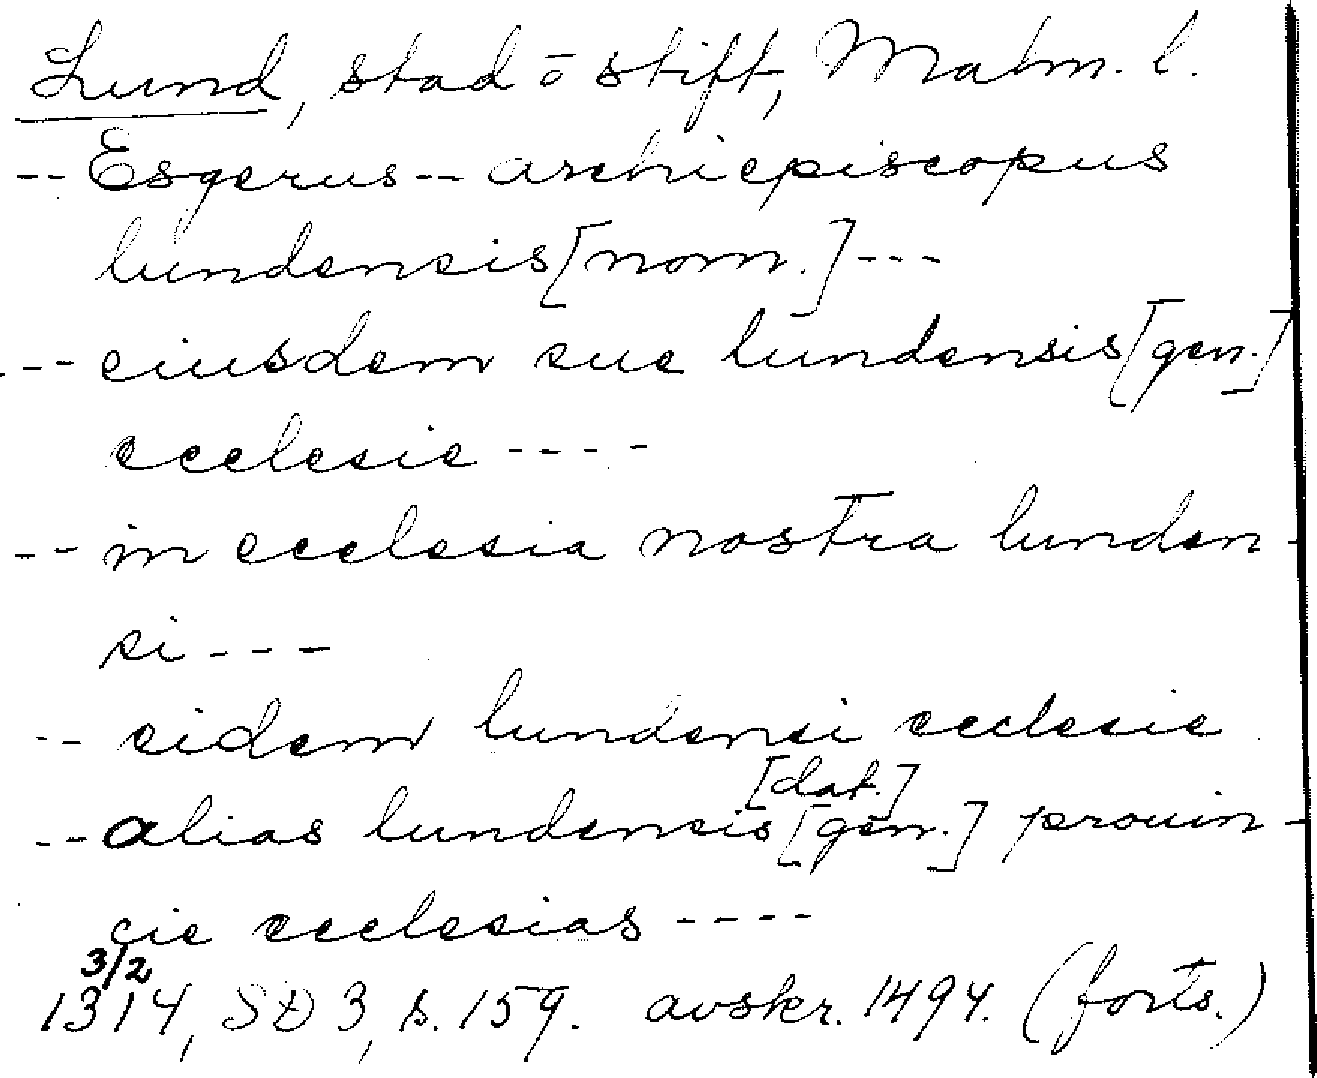 Lund, stad o stift, Malm. l.
-- Esgerus -- archiepiscopus
lundensis [nom.] ---
--- eiusdem sue lundensis [gen.]
ecclesie ----
-- in ecclesia nostra lunden-
si ---
-- eidem lundensi ecclesie
[dat.]
-- alias lundensis [gen.] prouin-
cie ecclesias ----
3/2
1314, SD 3, s. 159. avskr. 1494. (forts.)